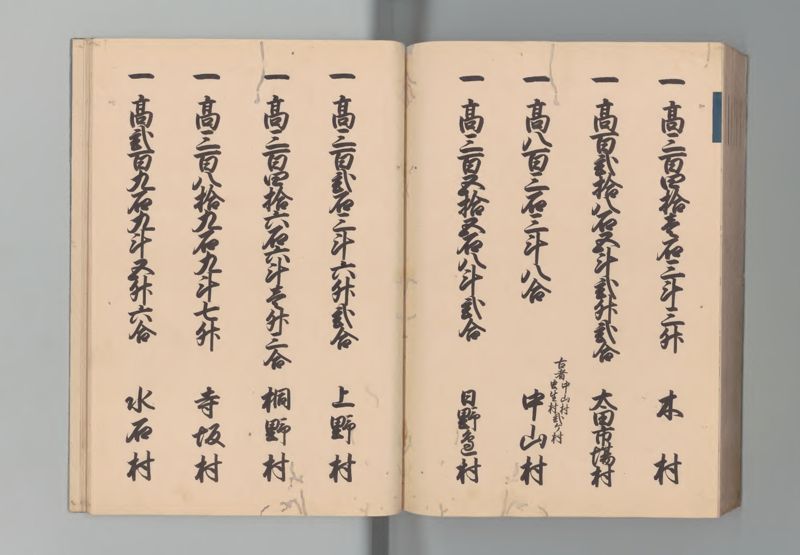 一 高三百四拾壱石三斗三升 木村
一 高百弐拾八石五斗弐升弐合 太田市場村
一 高八百三石三斗八合 中山村
古者中山村
虫生村弐ヶ村
一 高三百五拾五石八斗弐合 日野辺村
一 高三百弐石三斗六升弐合 上野村
一 高三百四拾六石六斗壱升三合 桐野村
一 高三百八拾九石九斗七升 寺坂村
一 高弐百九石九斗五升六合 水石村